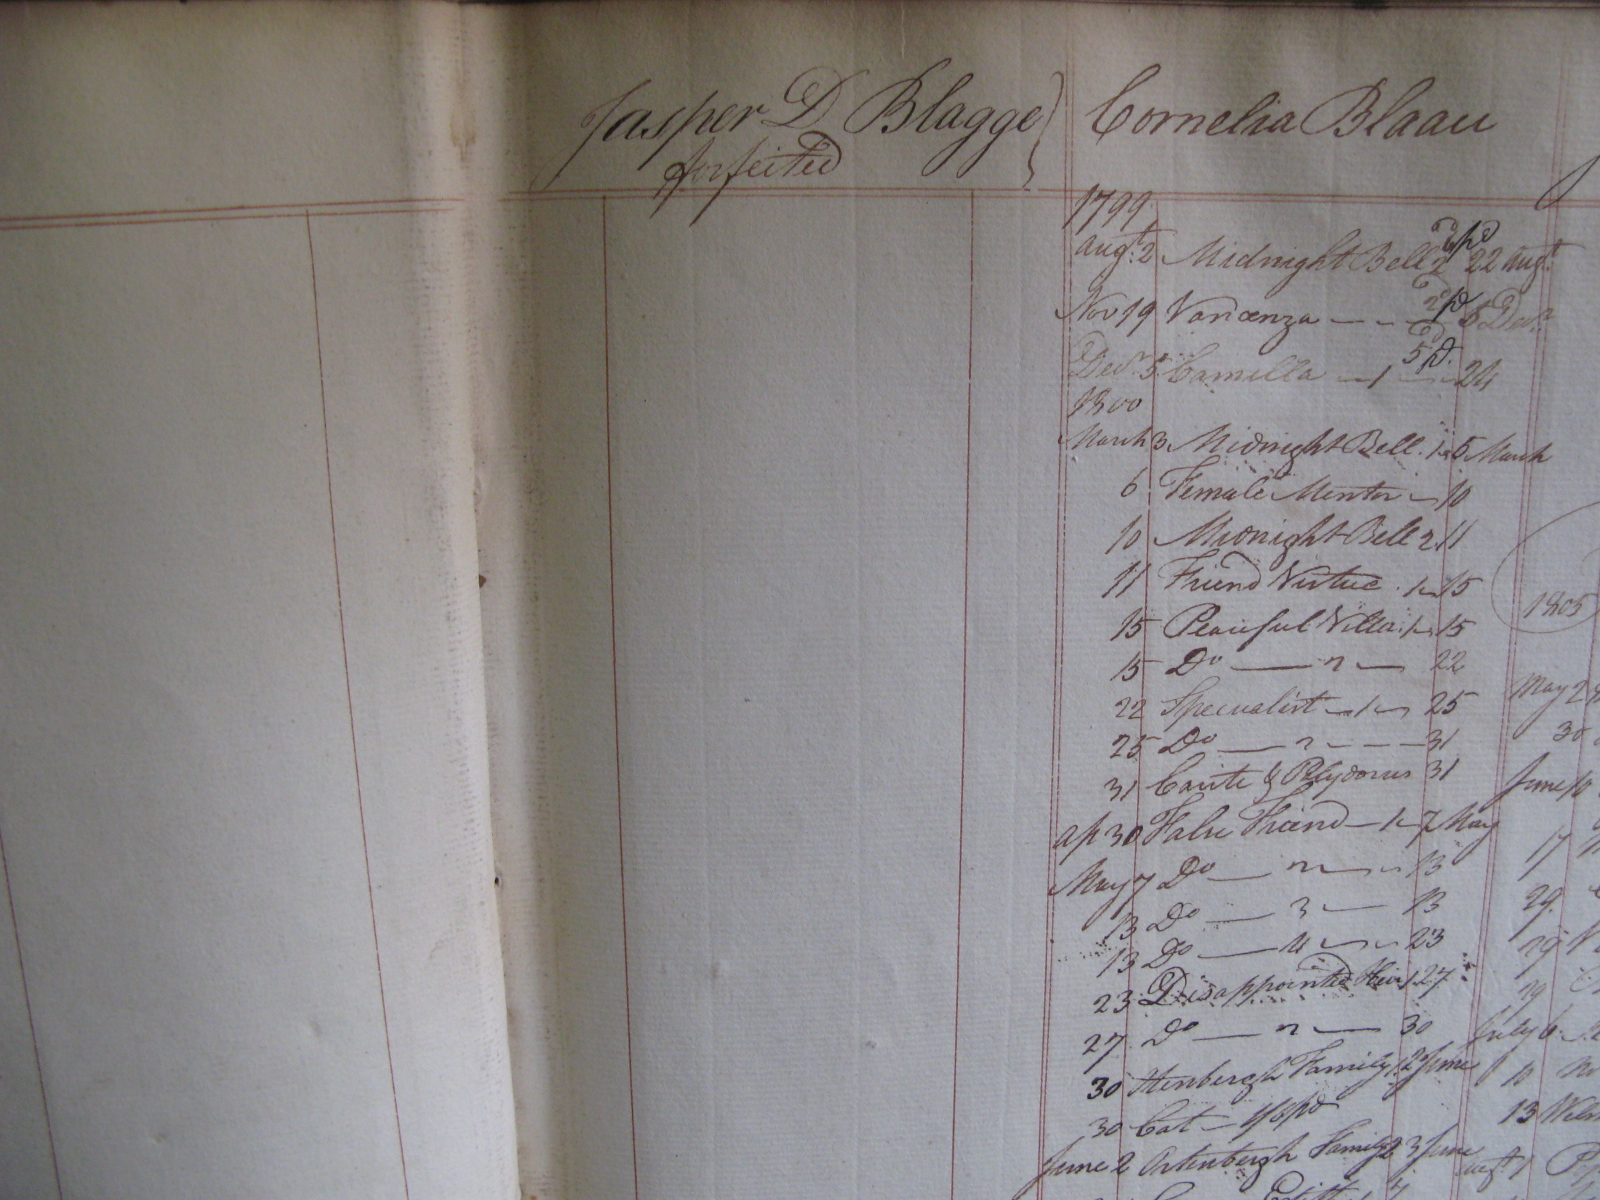 Jasper D Blagge
forfeited
Cornelia Blaau
1799
Augt. 2 Midnight Bell 2 22 Augt
2/pd
Nov 19 Vancenza — - 2/pd 5 Decr.
Decr. 5 Camilla — 1 — 24
5 pd.
1800
March 3 Midnight Bell. 1 5 March
6 Female Mentor — 10
10 Midnight Bell 2 11
11 Friend Virtue . 1 — 15
15 Peaceful Villa . 1 — 15
15 Do — 2 — 22
22 Specualist — 1 — 25
25 Do — 2 - - - 31
31 Carite & Polydorus 31
Ap 30 False Friend — 1 — 7 May
May 7 Do — 2 — 13
13 Do — 3 — 13
13 Do — 4 — 23
23 Disappointed Heir 1 27
27 Do — 2 — 30
30 Family 1 2 June
30 Cat — pd
June 2 Family 2 3 June
1805
May 2
30
June 10
17
29
29
29
July 6
10
13
Augt 1